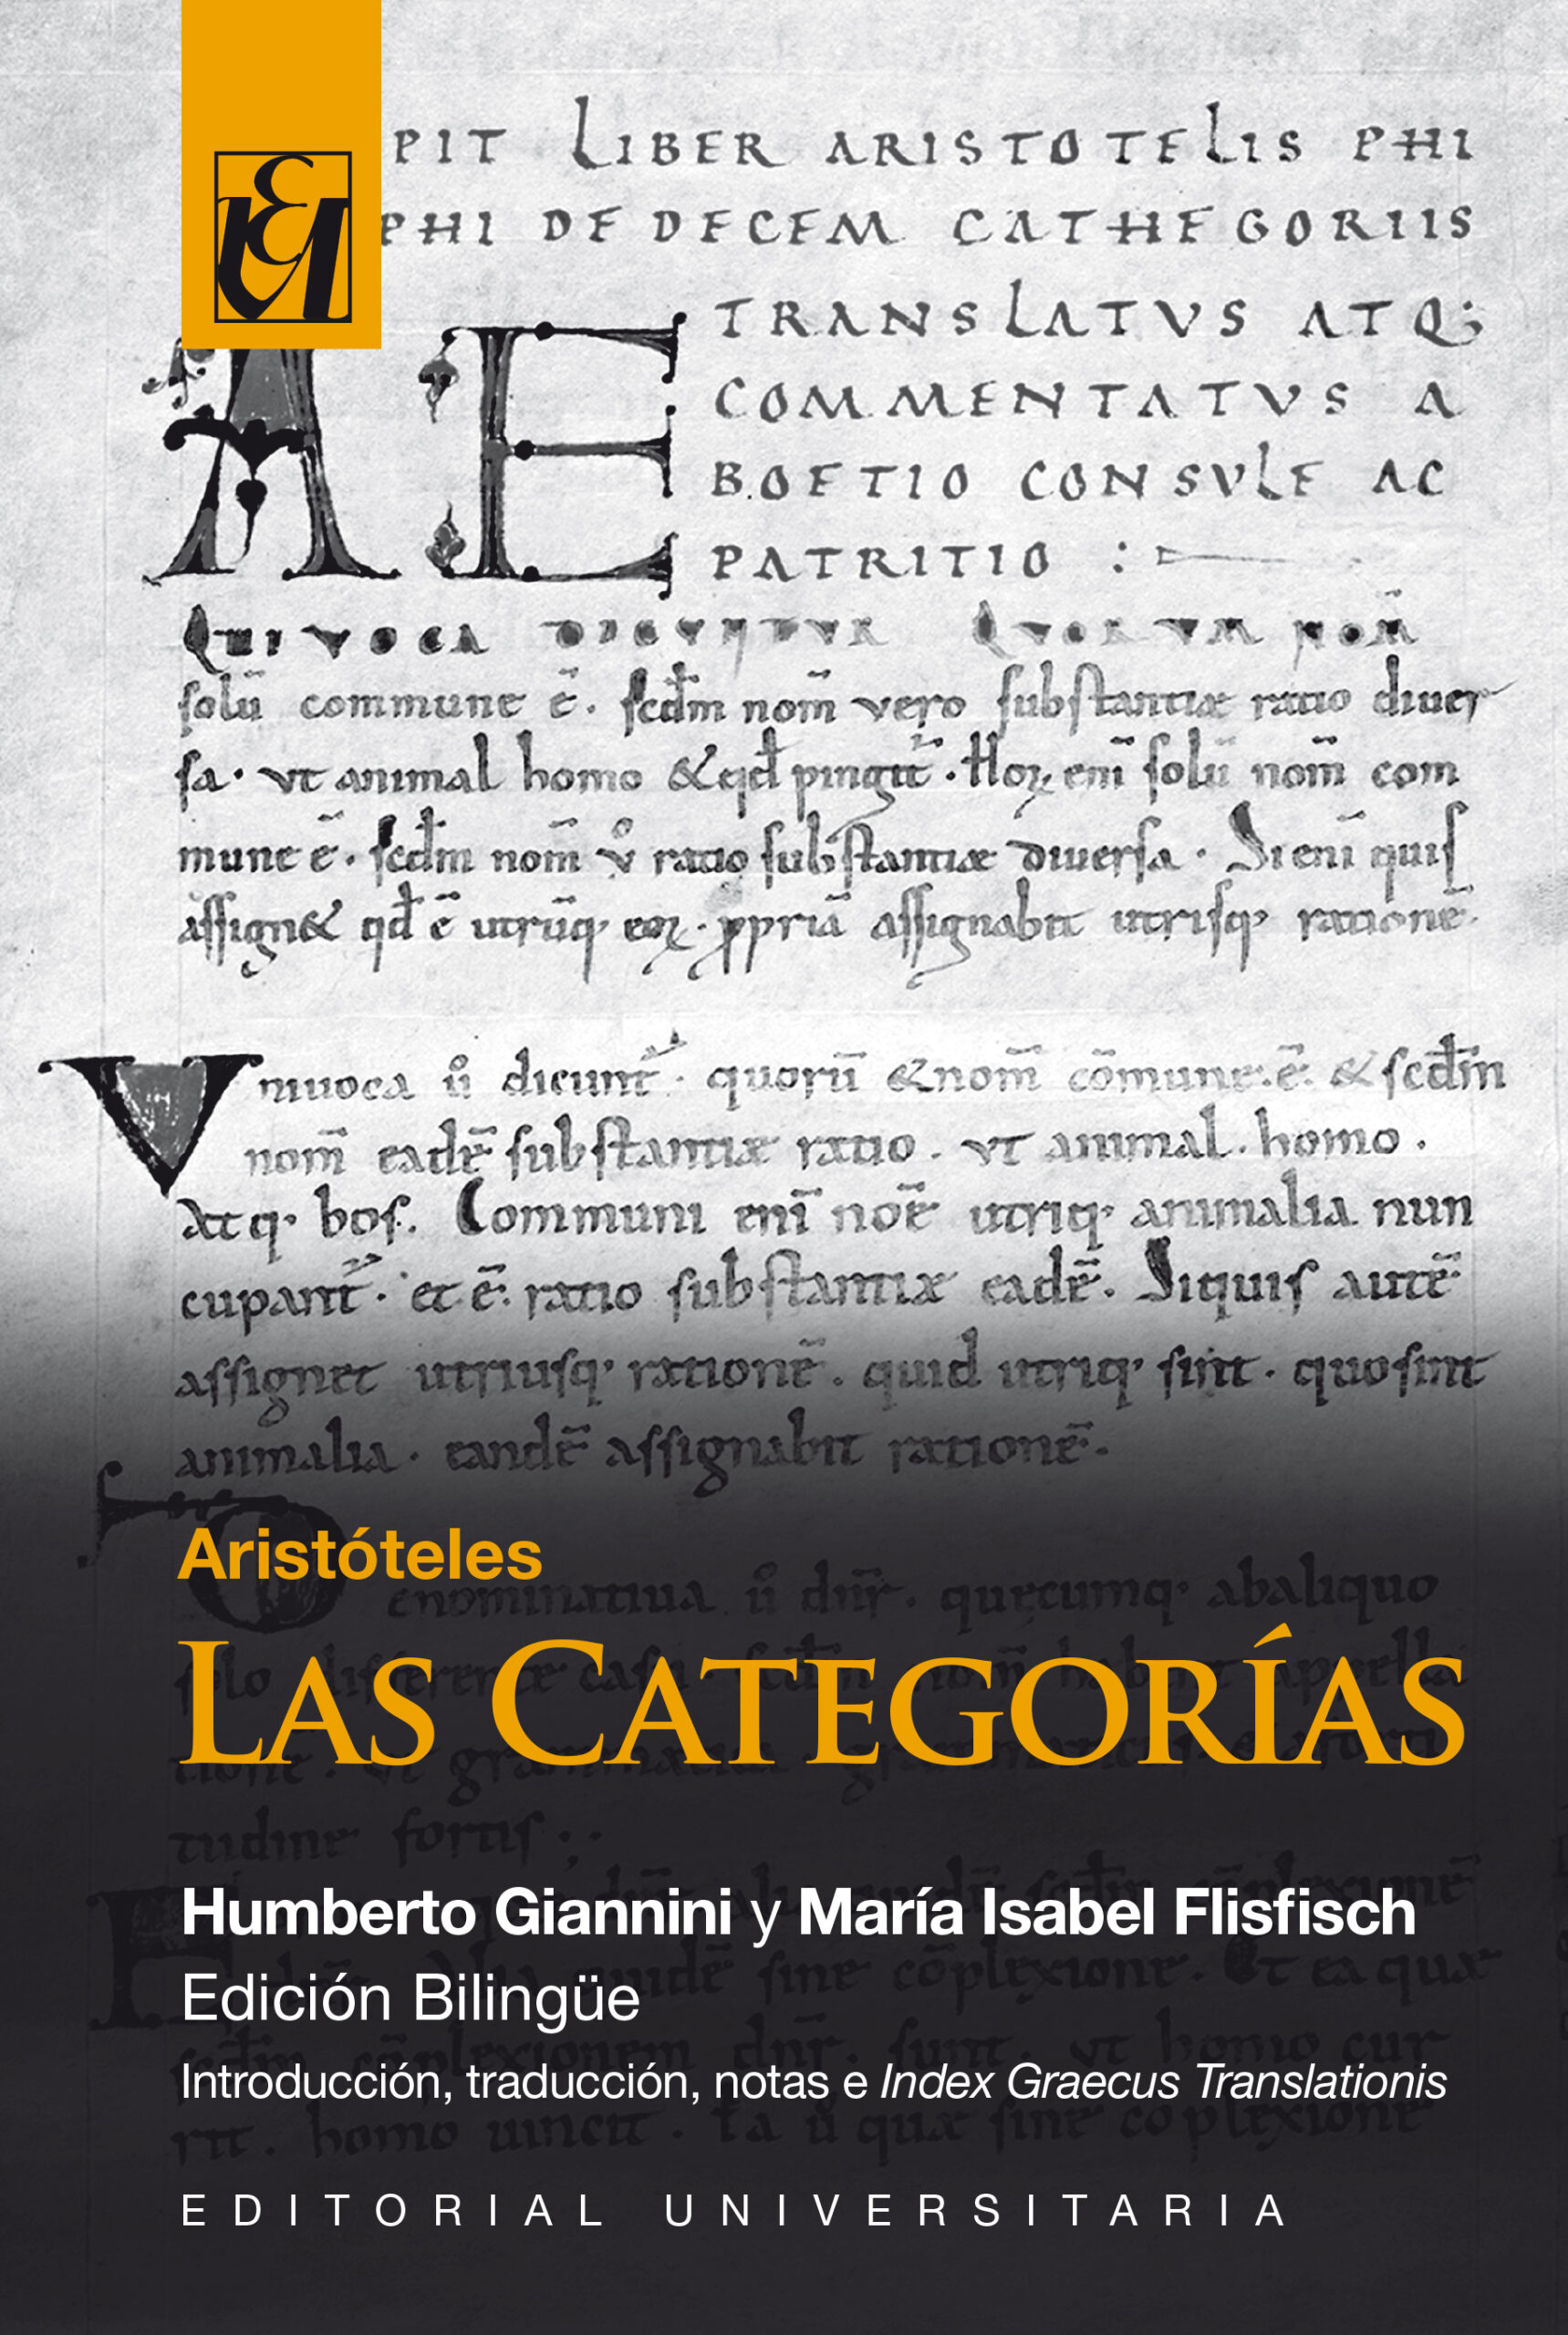 PIT LIBER ARISTOTELIS PHI
PHI DE DECEM CATHEGORIIS
TRANSLATUS ATQ;
COMMENTATUS A
BOETIO CONSULE AC
PATRITIO :
AE
QUIVOCA DICUNTUR QUORUM NOM̄
solū commune ē. scd̄m nom̄ vero substantiæ ratio diver
sa. ut animal homo & qd̄ pingit̄. Hoꝝ eni solū nom̄ com
mune ē. scd̄m nom̄ v̊ ratio substantiæ diversa. Si enī quis
assign& qd̄ ē utrūq; eoꝝ. ꝓpriā assignabit utrisq; rationē.
Univoca ů dicunt̄. quorū & nom̄ cōmune. ē. & scd̄m
nom̄ eadē substantiæ ratio. ut animal. homo.
Atq; bos. Communi enī noē utriq; animalia nun
cupant̄. et. ē. ratio substantiæ eadē. Siquis autē
assignet utriusq; rationē. quid utriq; sint. quo sint
animalia. eandē assignabit rationē.
Aristóteles
Denominativa ů dnr̄. quęcumq; ab aliquo
LAS CATEGORÍAS
solo
tudine fortis
Humberto Giannini y María Isabel Flisfisch
sine cōplexione. Et ea quæ
Edición Bilingüe
ut homo cur
Introducción, traducción, notas e Index Graecus Translationis
rit. homo vincit. Ea ů quæ sine cōplexione
EDITORIAL UNIVERSITARIA